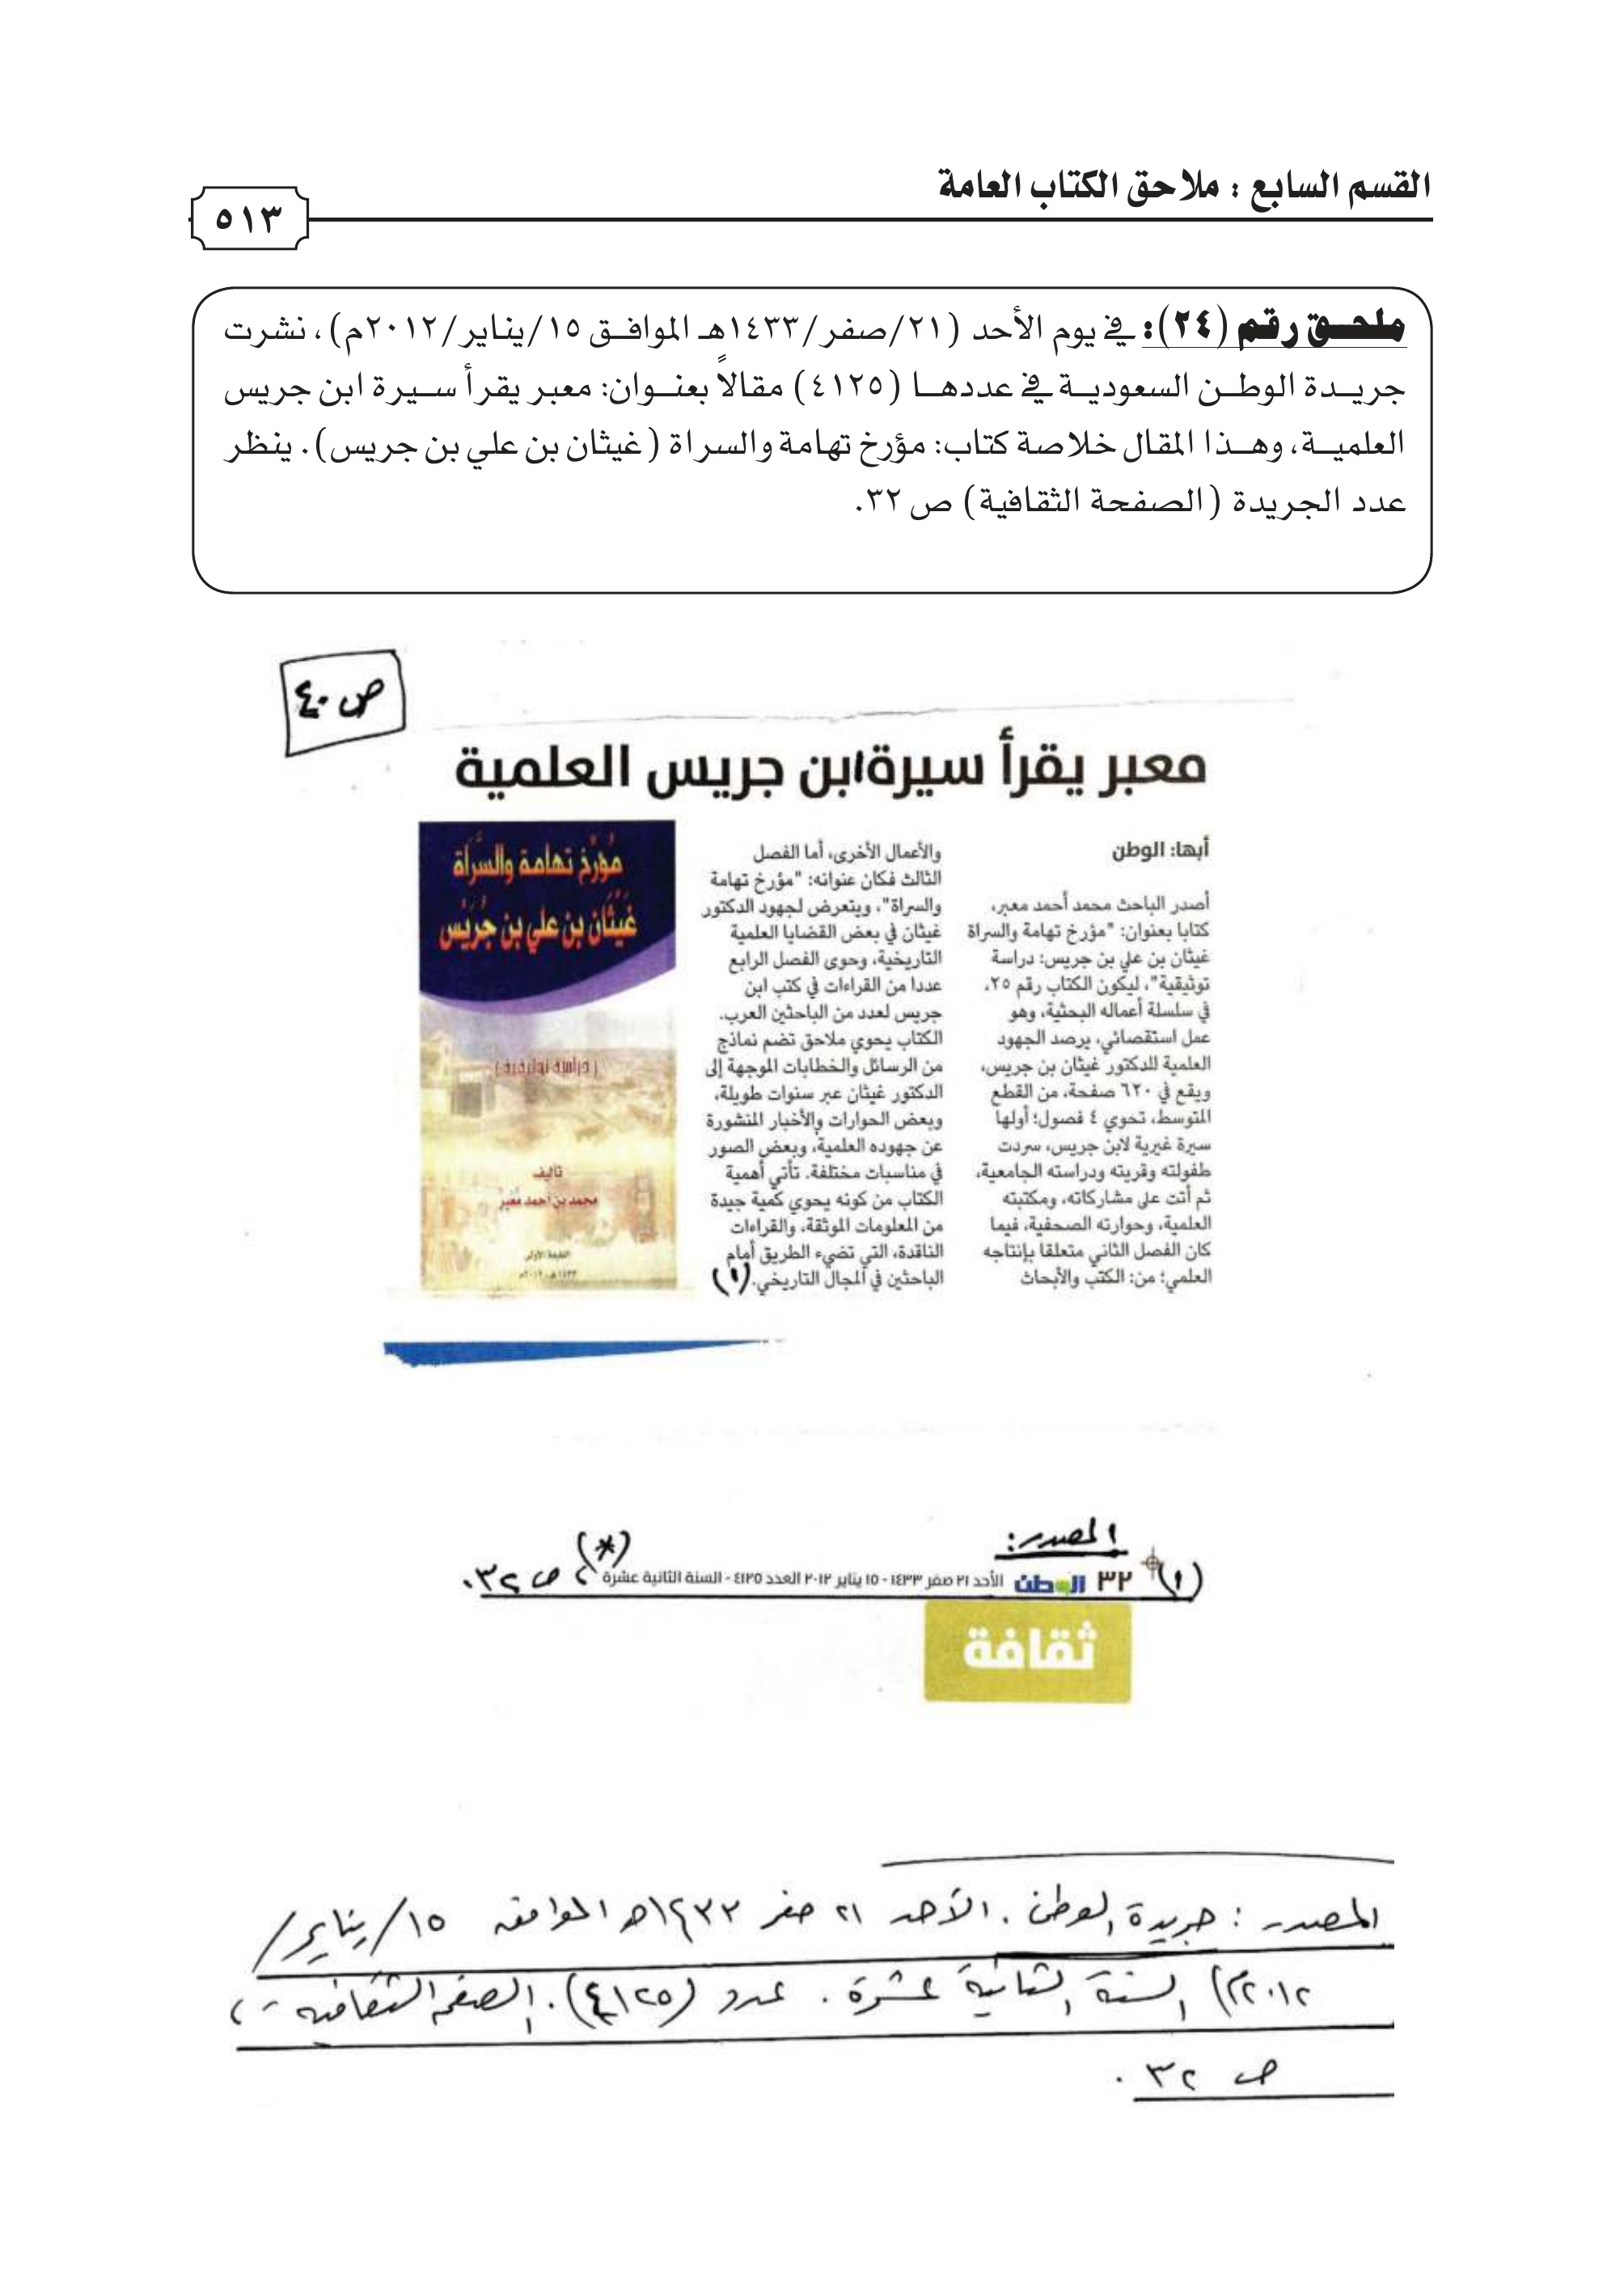 القسم السابع : ملاحق الكتاب العامة
٥١٣
ملحق رقم (٢٤): في يوم الأحد (٢١/صفر/١٤٣٣هـ الموافق ١٥/يناير/٢٠١٢م)، نشرت
جريدة الوطن السعودية في عددها (٤١٢٥) مقالاً بعنوان: معبر يقرأ سيرة ابن جريس
العلمية، وهذا المقال خلاصة كتاب: مؤرخ تهامة والسراة (غيثان بن علي بن جريس). ينظر
عدد الجريدة (الصفحة الثقافية) ص ٣٢.
ص ٤٠
معبر يقرأ سيرة ابن جريس العلمية
أبها: الوطن
أصدر الباحث محمد أحمد معبر،
كتابا بعنوان: "مؤرخ تهامة والسراة
غيثان بن علي بن جريس: دراسة
توثيقية"، ليكون الكتاب رقم ٢٥،
في سلسلة أعماله البحثية، وهو
عمل استقصائي، يرصد الجهود
العلمية للدكتور غيثان بن جريس،
ويقع في ٦٢٠ صفحة، من القطع
المتوسط، تحوي ٤ فصول؛ أولها
سيرة غيرية لابن جريس، سردت
طفولته وقريته ودراسته الجامعية،
ثم أتت على مشاركاته، ومكتبته
العلمية، وحوارته الصحفية، فيما
كان الفصل الثاني متعلقا بإنتاجه
العلمي؛ من: الكتب والأبحاث
والأعمال الأخرى، أما الفصل
الثالث فكان عنوانه: "مؤرخ تهامة
والسراة"، ويتعرض لجهود الدكتور
غيثان في بعض القضايا العلمية
التاريخية، وحوى الفصل الرابع
عددا من القراءات في كتب ابن
جريس لعدد من الباحثين العرب.
الكتاب يحوي ملاحق تضم نماذج
من الرسائل والخطابات الموجهة إلى
الدكتور غيثان عبر سنوات طويلة،
وبعض الحوارات والأخبار المنشورة
عن جهوده العلمية، وبعض الصور
في مناسبات مختلفة. تأتي أهمية
الكتاب من كونه يحوي كمية جيدة
من المعلومات الموثقة، والقراءات
الناقدة، التي تضيء الطريق أمام
الباحثين في المجال التاريخي. (١)
مُؤرِّخ تهامة والسَّرَاة
غَيْثَان بن علي بن جُرَيْس
(دراسة توثيقية)
تأليف
محمد بن أحمد مُعبّر
الطبعة الأولى
١٤٣٣هـ - ٢٠١٢م
المصدر:
(١) ٣٢ الوطن الأحد ٢١ صفر ١٤٣٣ - ١٥ يناير ٢٠١٢ العدد ٤١٢٥ - السنة الثانية عشرة (*)، ص ٣٢.
ثقافة
المصدر : جريدة الوطن . الأحد ٢١ صفر ١٤٣٣هـ الموافق ١٥/يناير/
٢٠١٢م) السنة الثانية عشرة . عدد (٤١٢٥). الصفحة الثقافية - ،
ص ٣٢ .